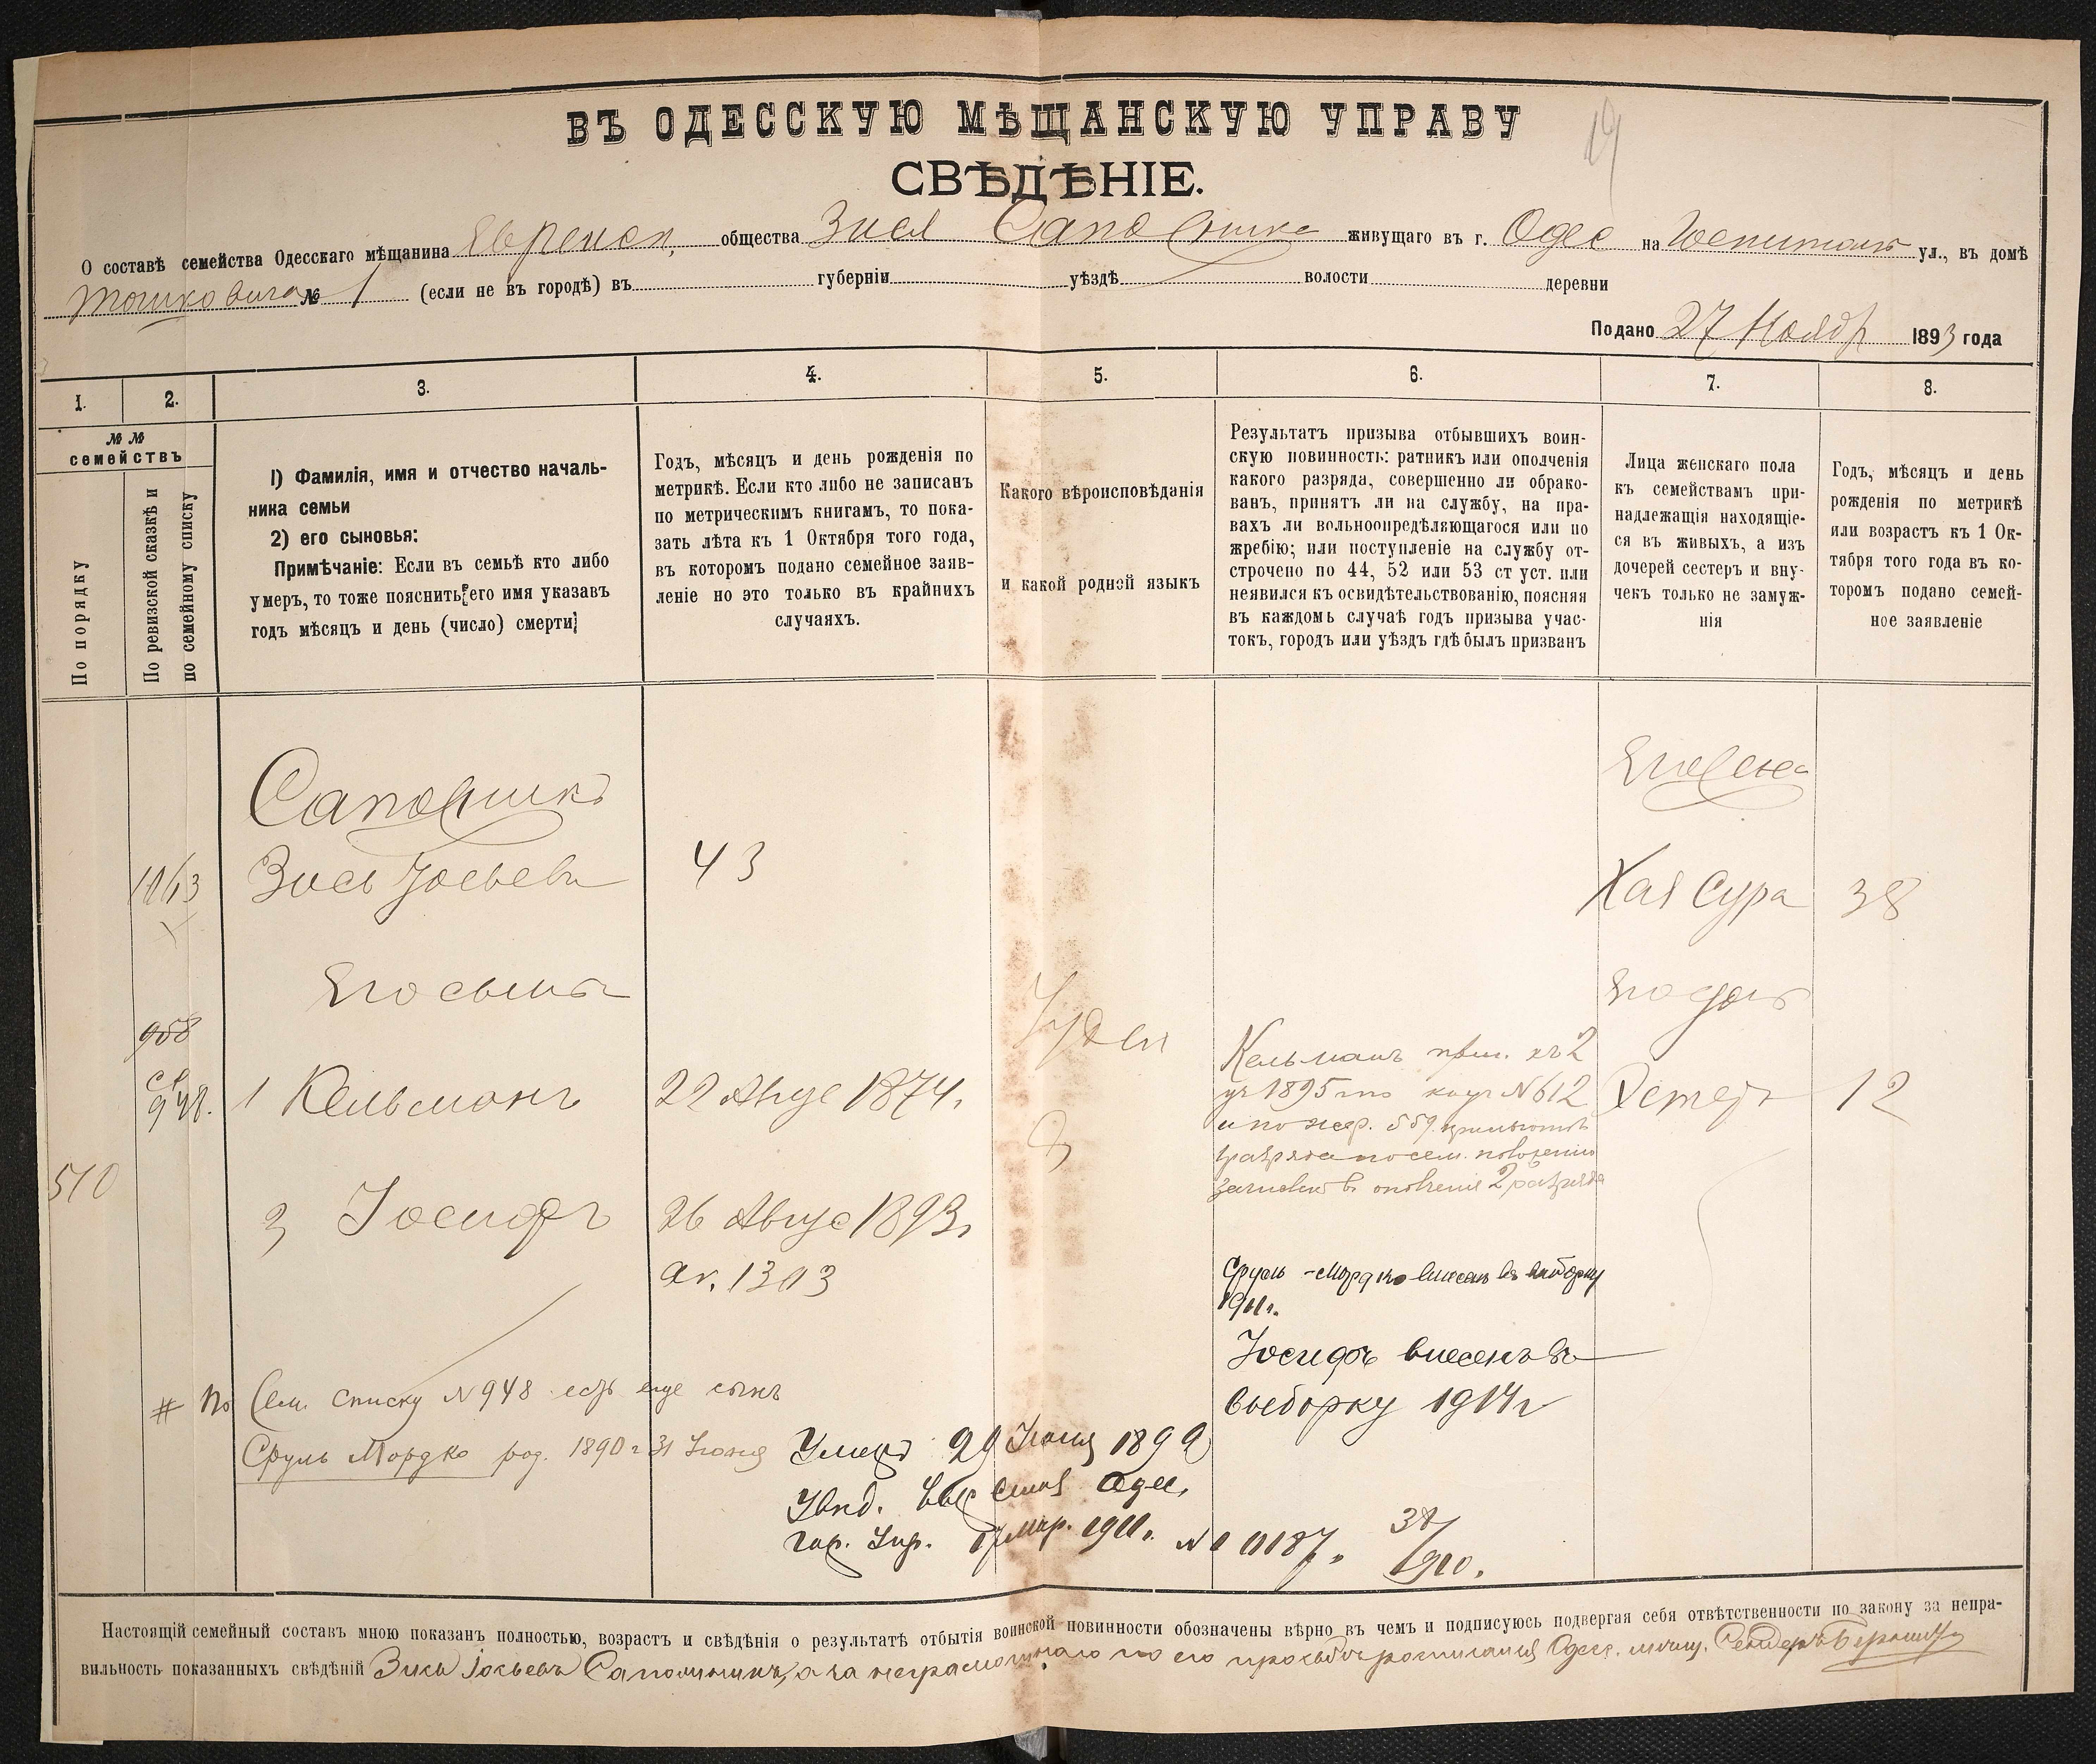 19
ВЪ ОДЕССКУЮ МѢЩАНСКУЮ УПРАВУ
СВѢДѢНІЕ.
О составѣ семейства Одесскаго мѣщанина Еврейск. общества Зися живущаго въ г. Одес на Госпитальн ул., въ домѣ
№ 1 (если не въ городѣ) въ губерніи уѣздѣ волости деревни
Подано 27 Ноябр 1893 года
1. 2. 3. 4. 5. 6. 7. 8.
№ №
семействъ
По порядку
По ревизской сказкѣ и
по семейному списку
1) Фамилія, имя и отчество началь-
ника семьи
2) его сыновья:
Примѣчаніе: Если въ семьѣ кто либо
умеръ, то тоже пояснить его имя указавъ
годъ мѣсяцъ и день (число) смерти
Годъ, мѣсяцъ и день рожденія по
метрикѣ. Если кто либо не записанъ
по метрическимъ книгамъ, то пока-
зать лѣта къ 1 Октября того года,
въ которомъ подано семейное заяв-
леніе но это только въ крайнихъ
случаяхъ.
Какого вѣроисповѣданія
и какой родной языкъ
Результатъ призыва отбывшихъ воин-
скую повинность: ратникъ или ополченія
какого разряда, совершенно ли обрако-
ванъ, принятъ ли на службу, на пра-
вахъ ли вольноопредѣляющагося или по
жребію; или поступленіе на службу от-
строчено по 44, 52 или 53 ст уст. или
неявился къ освидѣтельствованію, поясняя
въ каждомь случаѣ годъ призыва учас-
токъ, городъ или уѣздъ гдѣ былъ призванъ
Лица женскаго пола
къ семействамъ при-
надлежащія находящіе-
ся въ живыхъ, а изъ
дочерей сестеръ и вну-
чекъ только не замуж-
нія
Годъ, мѣсяцъ и день
рожденія по метрикѣ
или возрастъ къ 1 Ок-
тября того года въ ко-
торомъ подано семей-
ное заявленіе
Его жена
Зись Іосьевъ 43
Хая Сура 38
Его сынъ
Іудей
958
948.
1 Кельманъ 22 Авгус 1874г.
Кельманъ приз. къ 2
уч 1895 по №612
и по жер. 559
зачислен в ополченія 2 разряда
12
510
Іосифъ 26 Авгус 1893г.
ак. 1303
Сруль-Мордко внесенъ въ выборку
1911г.
Іосифъ внесенъ въ
выборку 1914г
# По Сем. списку №948 есть еще сынъ
Сруль Мордко род. 1890 г 31 Іюня
Умеръ 29 Іюня 1892
Одес.
гор. Упр. 17 Мар. 1911г. № 10187.
38/1910.
Настоящій семейный составъ мною показанъ полностью, возрастъ и свѣдѣнія о результатѣ отбытія воинской повинности обозначены вѣрно въ чемъ и подписуюсь подвергая себя отвѣтственности по закону за непра-
вильность показанныхъ свѣдѣній Зись Іосьевъ а за неграмотнаго по его просьбѣ росписался Одес. мѣщ.